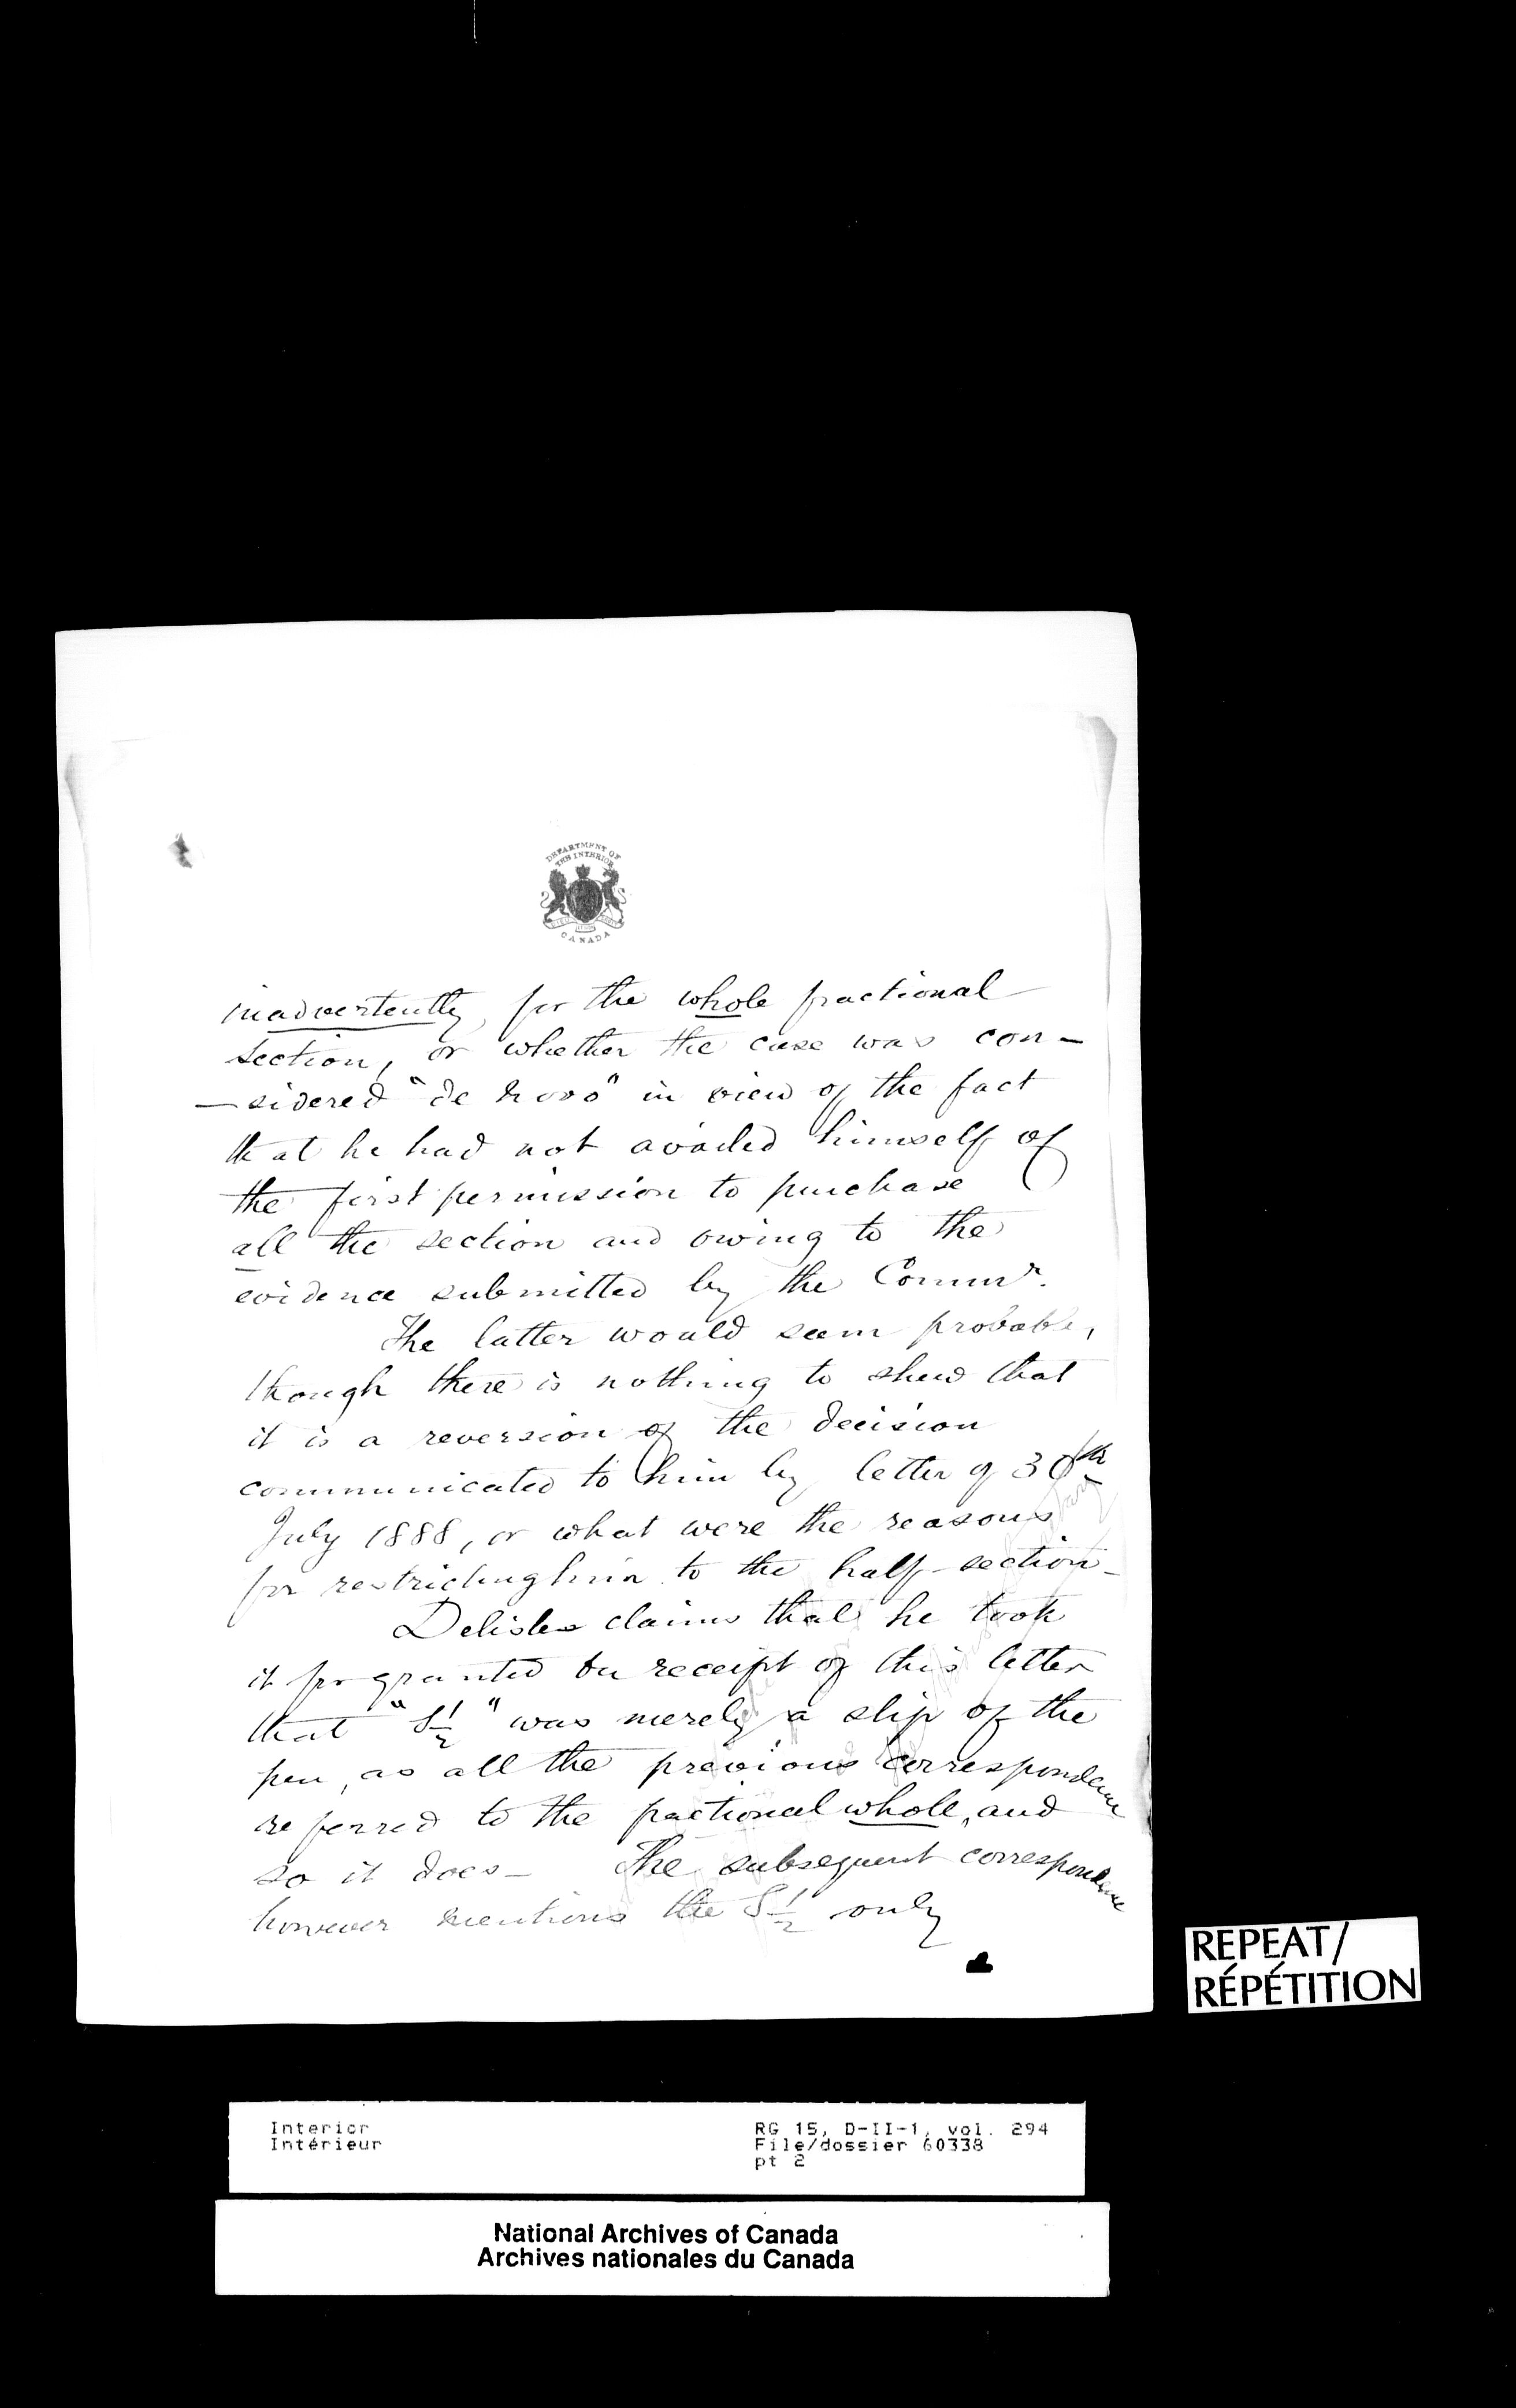 DEPARTMENT OF
THE INTERIOR
CANADA
inadvertently, for the whole fractional
section, or whether the case was con-
-sidered "de novo" in view of the fact
that he had not availed himself of
the first permission to purchase
all the section and owing to the
evidence submitted by the Commr.
The latter would seem probable,
though there is nothing to shew that
it is a reversion of the decision
communicated to him by letter of 30th
July 1888, or what were the reasons
for restricting him to the half-section-
Delisle claims that he took
it for granted on receipt of this letter
that "S½" was merely a slip of the
pen, as all the previous correspondence
referred to the fractional whole, and
so it does- The subsequent correspondence
however mentions the S½ only
REPEAT/
RÉPÉTITION
Interior
Intérieur
RG 15, D-II-1, vol. 294
File/dossier 60338
pt 2
National Archives of Canada
Archives nationales du Canada